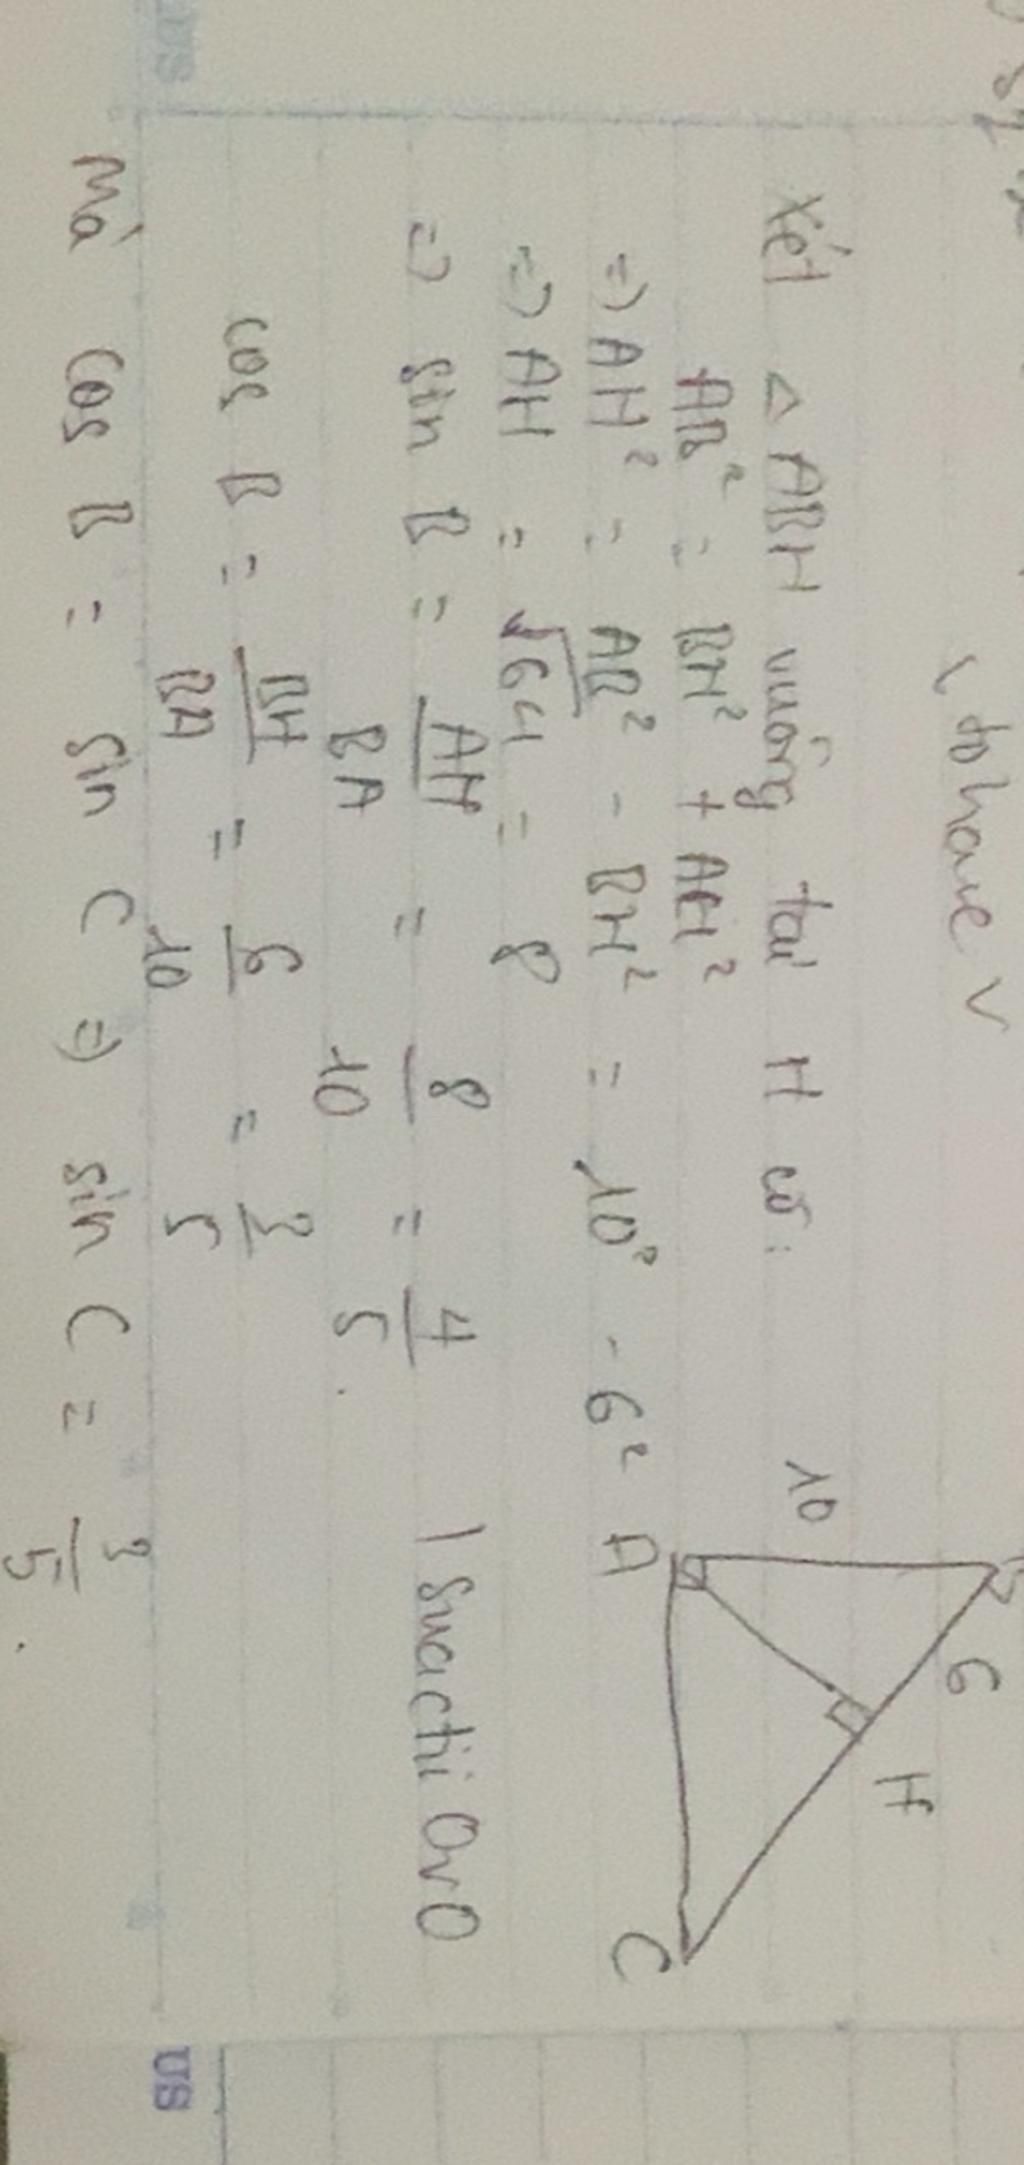 to have v
Xét △ ABH vuông tại H có:
AB² = BH² + AH²
=> AH² = AB² - BH² = 10² - 6²
=> AH = √64 = 8
=> sin B = AH/BA = 8/10 = 4/5.
cos B = BH/BA = 6/10 = 3/5
Mà cos B = sin C => sin C = 3/5.
10
6
H
A
C
us